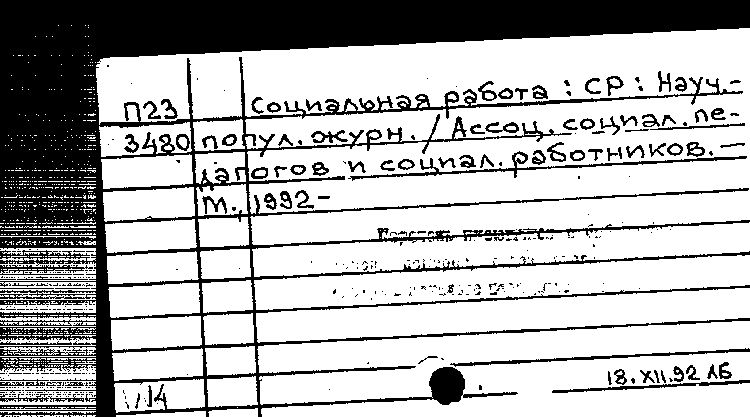 П23 Социальная работа : СР : Науч.-
3480 попул. журн. / Ассоц. социал. пе-
дагогов и социал. работников. —
М., 1992 -
18.XII.92 ЛБ